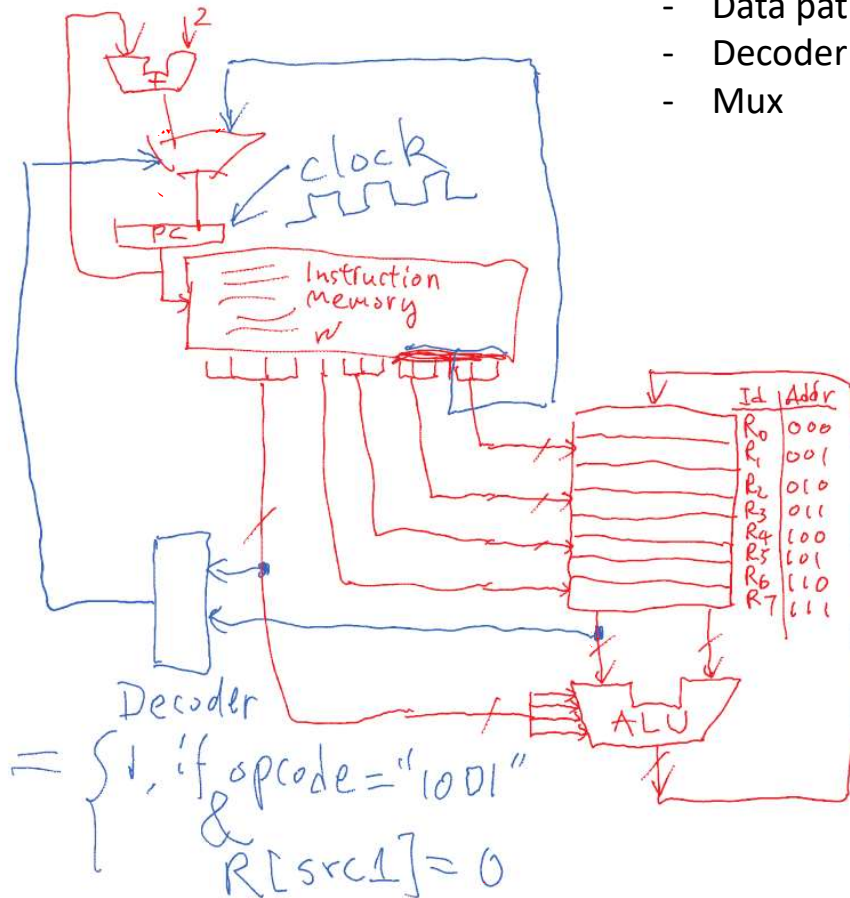 - Data pat
- Decoder
- Mux
2
+
clock
PC
Instruction
Memory
Id Addr
R0 000
R1 001
R2 010
R3 011
R4 100
R5 101
R6 110
R7 111
Decoder
ALU
= { 1, if opcode = "1001"
&
R[src1] = 0